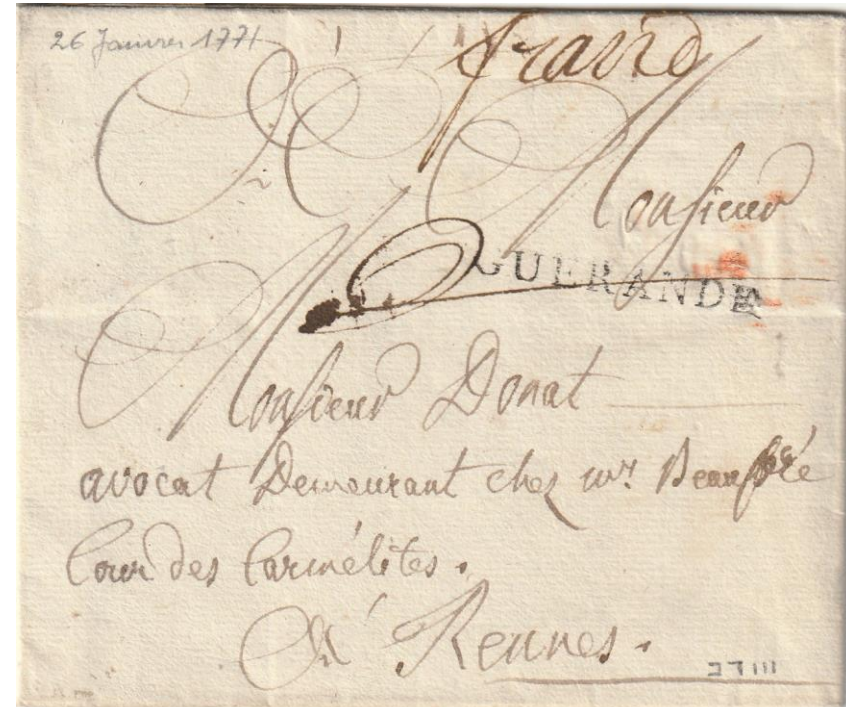 26 Janvier 1771
franco
A Monsieur
GUERANDE
Monsieur Donat
avocat Demeurant chez mr. Beaupré
Cour des Carmélites.
A Rennes.